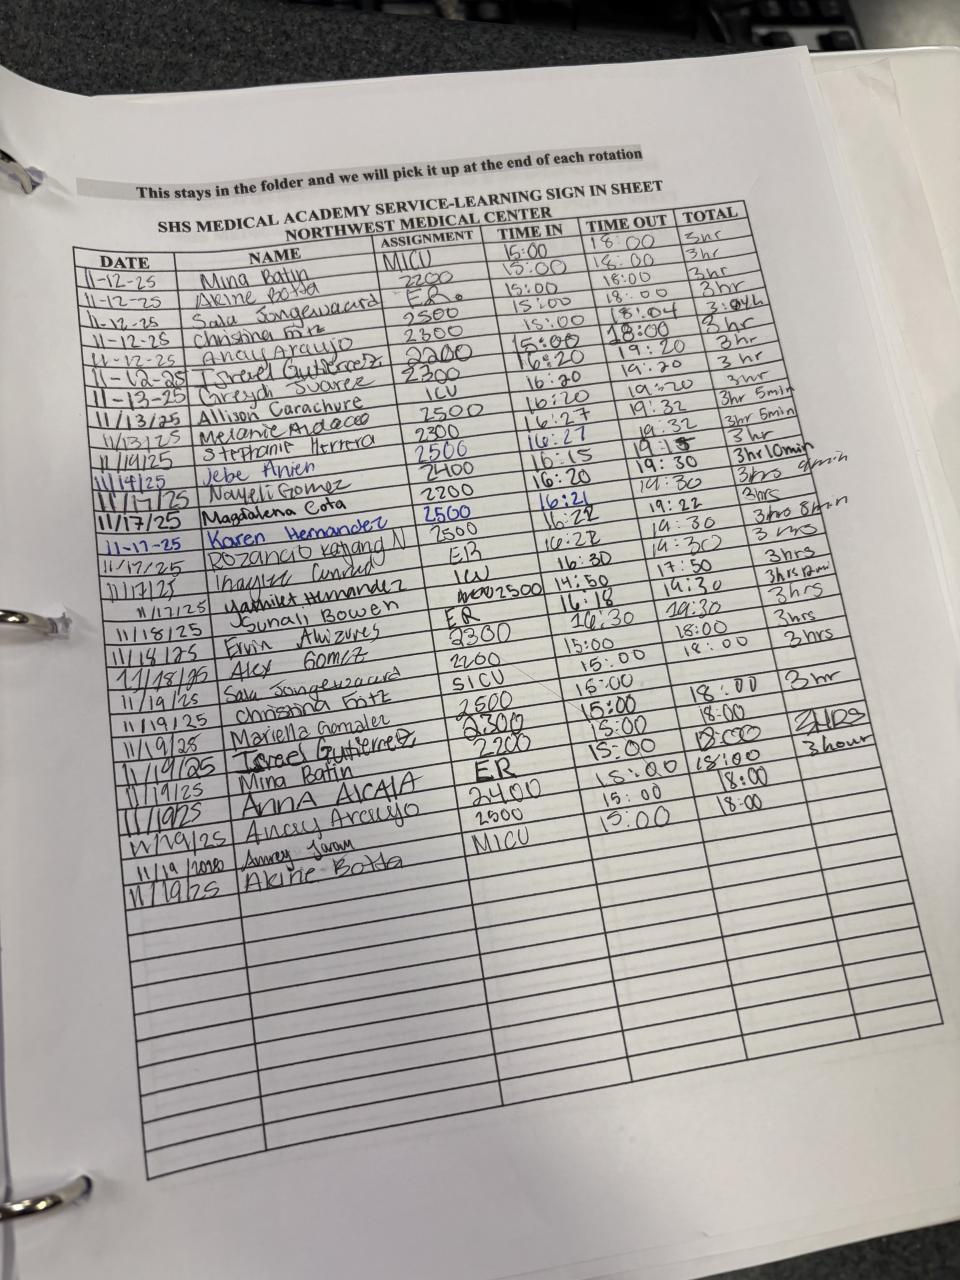 This stays in the folder and we will pick it up at the end of each rotation
SHS MEDICAL ACADEMY SERVICE-LEARNING SIGN IN SHEET
NORTHWEST MEDICAL CENTER
DATE NAME ASSIGNMENT TIME IN TIME OUT TOTAL
11-12-25 Mina Batin MICU 15:00 18:00 3hr
11-12-25 Akine Botta 2200 15:00 18:00 3hr
11-12-25 Sala Jongewaard E.R. 15:00 18:00 3hr
11-12-25 Christina 2500 15:00 18:00 3hr
11-12-25 Anay Araujo 2300 15:00 18:04 3:04h
11-12-25 Israel Gutierrez 2200 15:00 18:00 3hr
11-13-25 Greydi Suarez 2300 16:20 19:20 3hr
11/13/25 Allison Carachure ICU 16:20 19:20 3hr
11/13/25 Melanie 2500 16:20 19:20 3hr
11/14/25 Stephanie Herrera 2300 16:27 19:32 3hr 5min
11/14/25 Jebe 2500 16:27 19:32 3hr 5min
11/17/25 Nayeli Gomez 2400 16:15 19:15 3hr
11/17/25 Magdalena Cota 2200 16:20 19:30 3hr 10min
11-17-25 Karen Hernandez 2500 16:21 19:30
11/17/25 2500 16:22 19:22 3hrs
11/17/25 ER 16:22 19:30 3hrs 8min
11/17/25 Yamilet Hernandez ICU 16:30 19:30
11/18/25 Sunali Bowen 2500 14:50 17:50 3hrs
11/18/25 Ervin ER 16:18 19:30 3hrs 12min
11/18/25 Alex Gomez 2300 16:30 19:30 3hrs
11/19/25 Sala Jongewaard 2200 15:00 18:00 3hrs
11/19/25 Christina SICU 15:00 18:00 3hrs
11/19/25 Mariella Gonzalez 2500 15:00
11/19/25 Israel Gutierrez 2300 15:00 18:00 3hr
11/19/25 Mina Batin 2200 15:00 18:00
11/19/25 ANNA AlCAlA ER 15:00 18:00
11/19/25 Anay Araujo 2400 15:00 18:00 3hour
11/19 2500 15:00 18:00
11/19/25 Akine Botta MICU 15:00 18:00